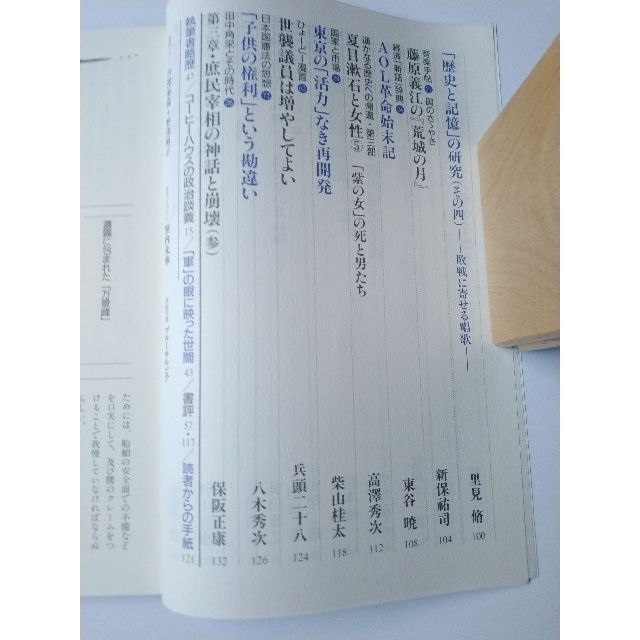 「歴史と記憶」の研究(その四)――敗戦に寄せる唱歌――
里見 脩 100
音楽手帖 国のささやき
藤原義江の『荒城の月』
新保祐司 104
経済「新語」辞典
AOL革命始末記
東谷 暁 108
遥かなる歴史への帰還・第三部
夏目漱石と女性(5) 「紫の女」の死と男たち
高澤秀次 112
国家と市場
東京の「活力」なき再開発
柴山桂太 118
ひょーどー漫言
世襲議員は増やしてよい
兵頭二十八 124
日本国憲法の思想
「子供の権利」という勘違い
八木秀次 126
田中角栄とその時代
第三章・庶民宰相の神話と崩壊(参)
保阪正康 132
執筆者略歴 47/コーヒーハウスの政治談義 15/「軍」の眼に映った世間 43/書評 57・117/読者からの手紙 121
濃霧に包まれた「万景峰」
ためには、船舶の安全面での不備など
を口実にして、及び腰のクレームをつ
けることで我慢していなければならぬ
らしい。